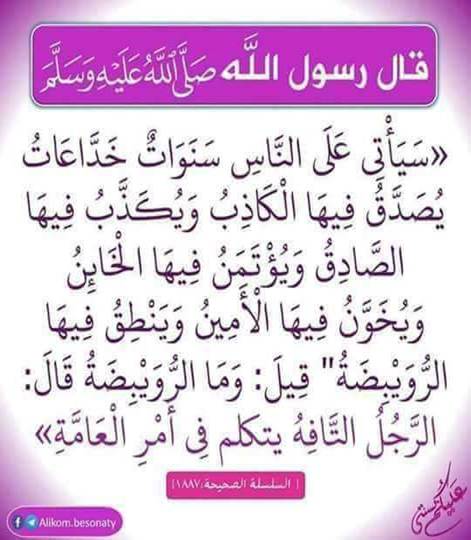 قال رسول الله صَلَّى اللَّهُ عَلَيْهِ وَسَلَّمَ
«سَيَأْتِي عَلَى النَّاسِ سَنَوَاتٌ خَدَّاعَاتُ
يُصَدَّقُ فِيهَا الْكَاذِبُ وَيُكَذَّبُ فِيهَا
الصَّادِقُ وَيُؤْتَمَنُ فِيهَا الْخَائِنُ
وَيُخَوَّنُ فِيهَا الْأَمِينُ وَيَنْطِقُ فِيهَا
الرُّوَيْبِضَةُ" قِيلَ: وَمَا الرُّوَيْبِضَةُ قَالَ:
الرَّجُلُ التَّافِهُ يتكلم فِي أَمْرِ الْعَامَّةِ»
[ السلسلة الصحيحة،١٨٨٧]
عليكم بسنتي
Alikom.besonaty